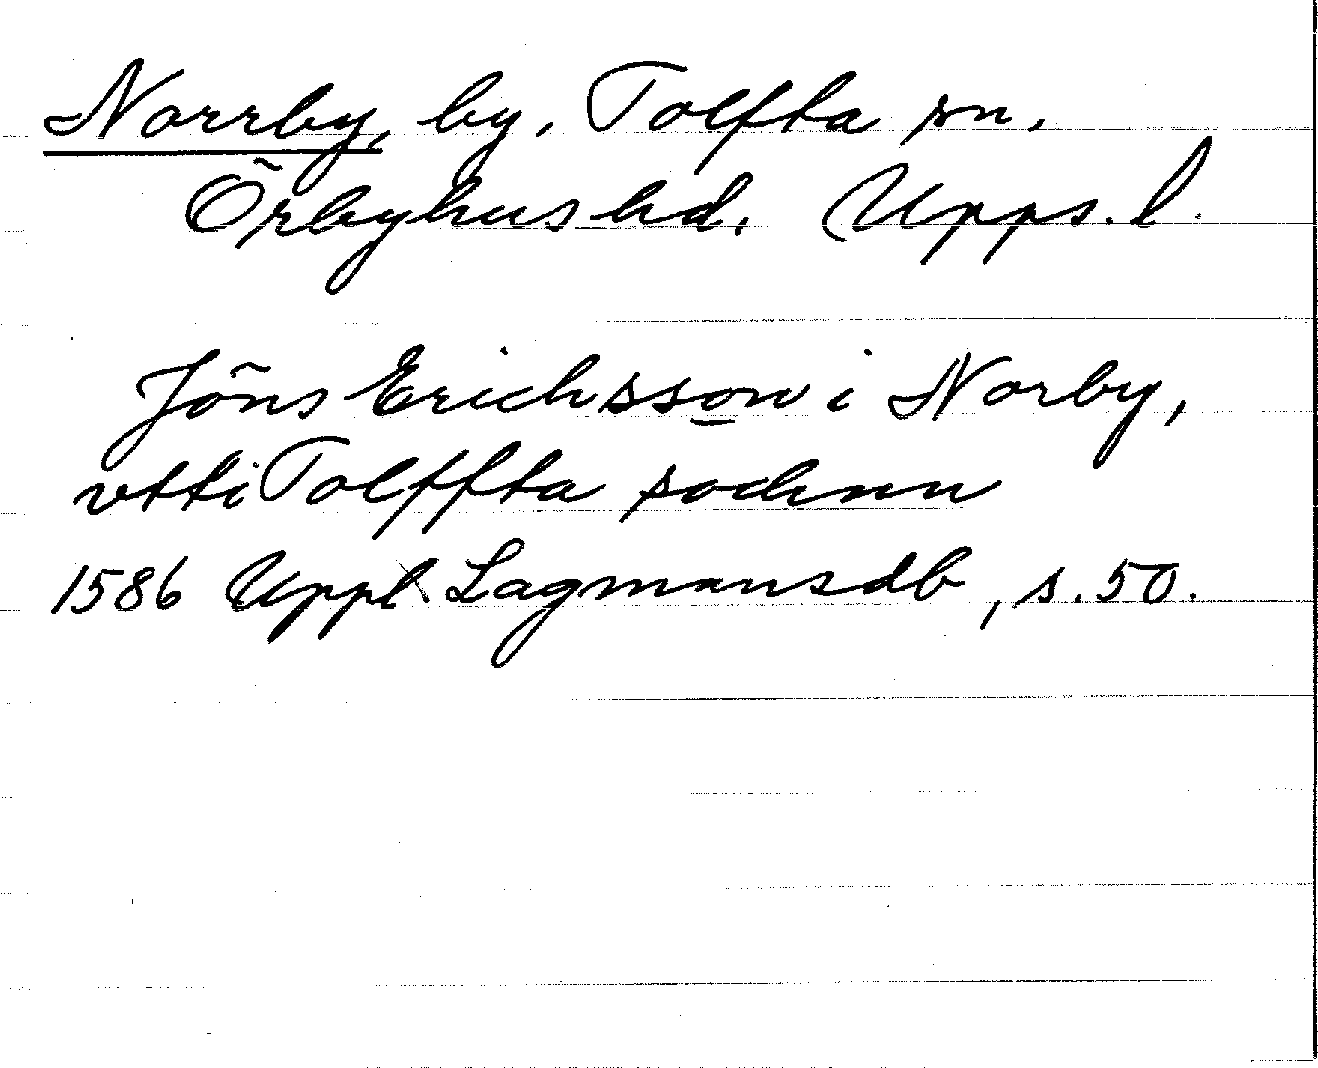 Norrby, by, Tolfta sn.
Örbyhus hd. Upps. l.
Jöns Erichsson i Norby,
vtti Tolffta sochnn
1586 Uppl. Lagmansdb, s. 50.